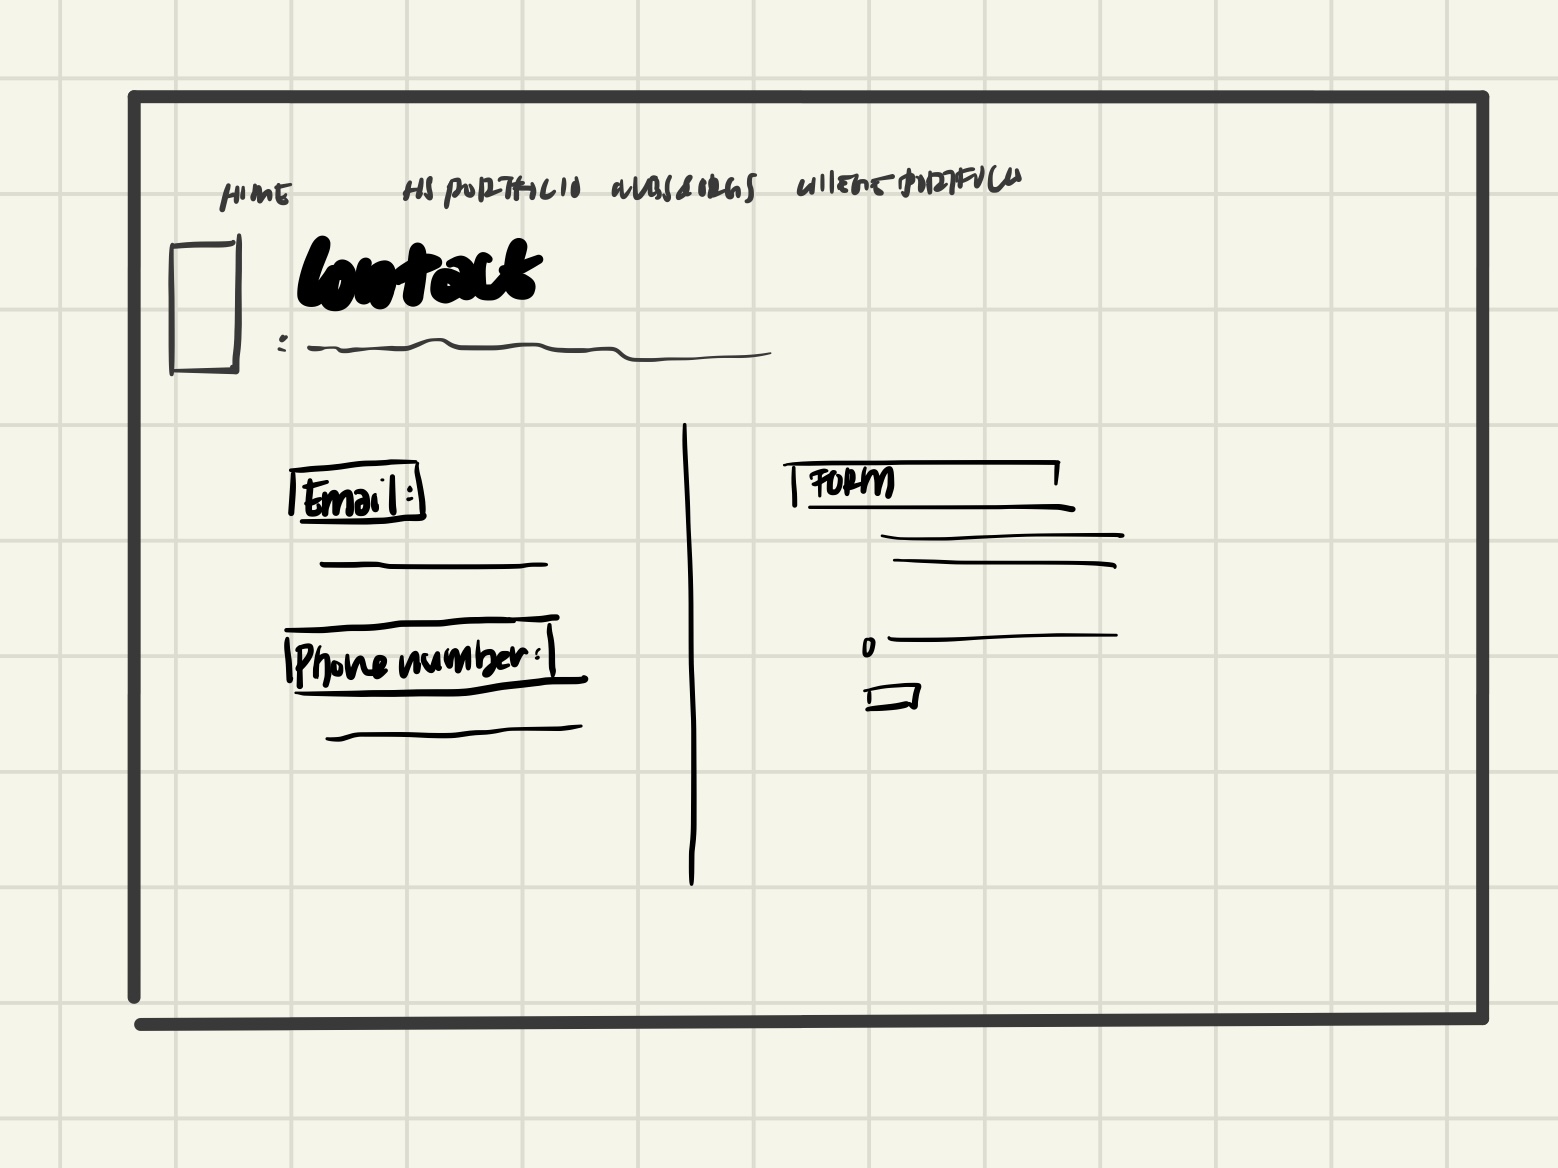 HOME HS PORTFOLIO CLUBS & ORGS COLLEGE PORTFOLIO
Contact
:
Email:
FORM
Phone number: